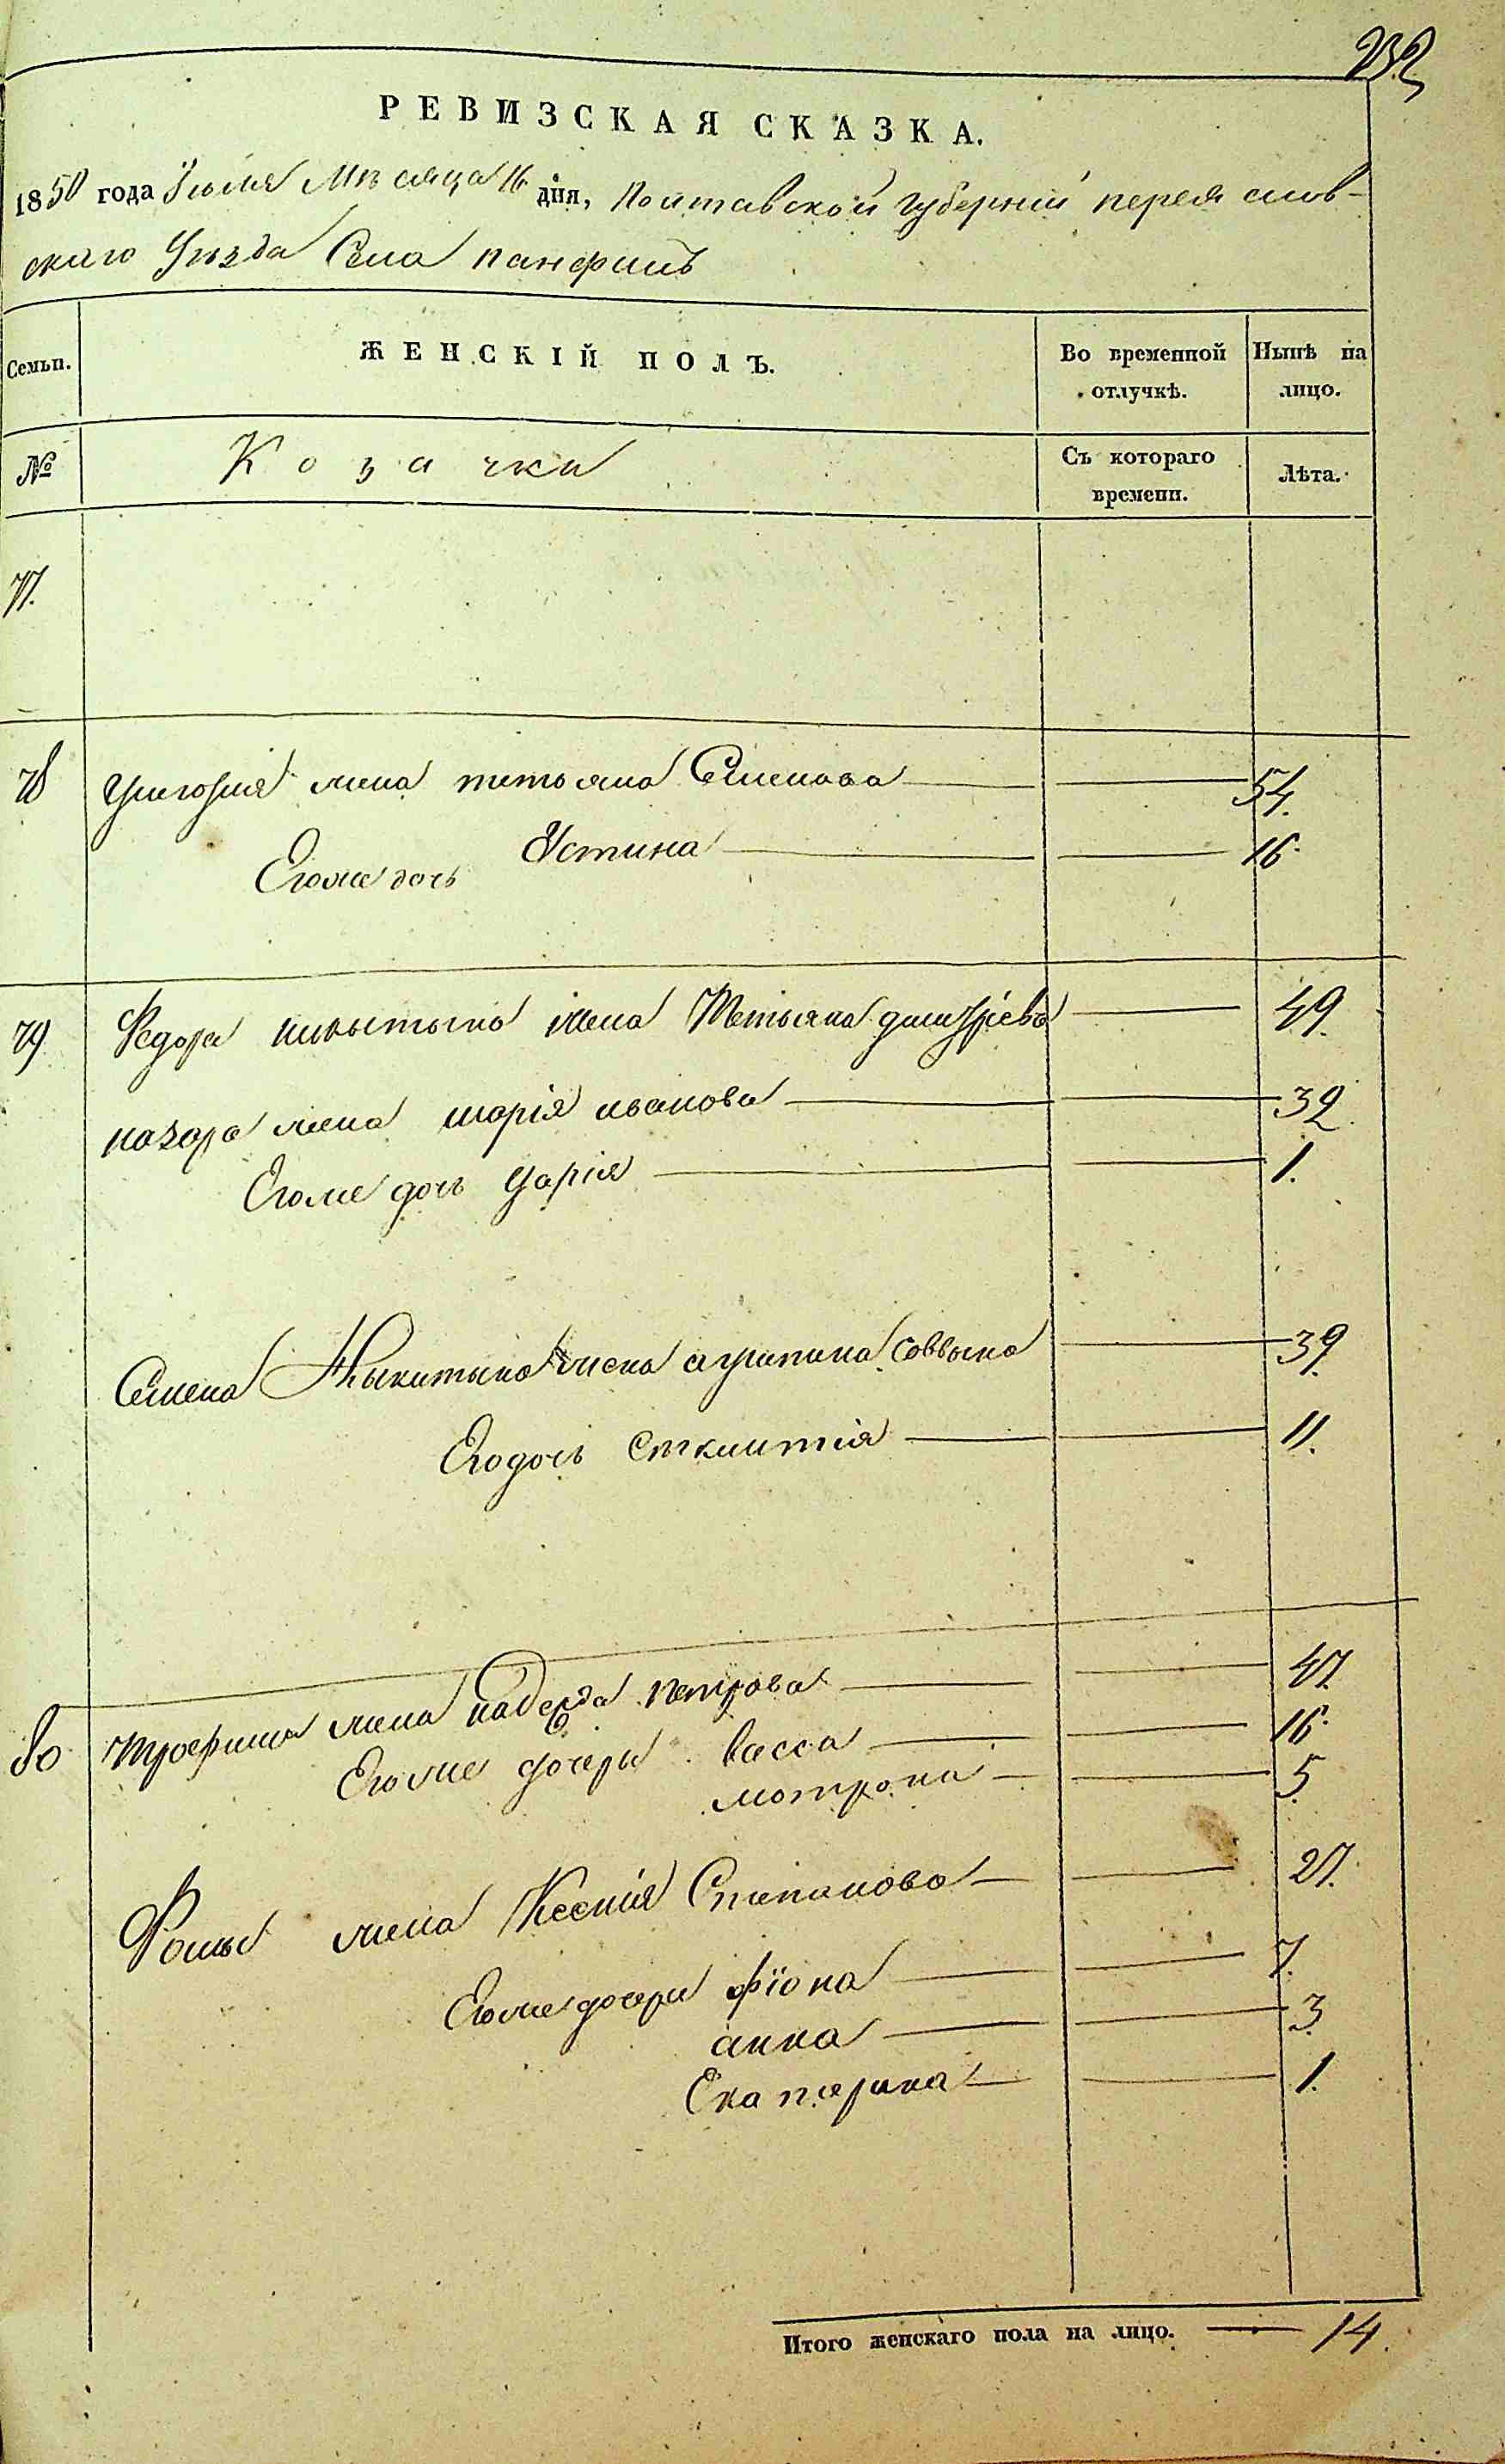 232
РЕВИЗСКАЯ СКАЗКА.
1850 года Іюля Мѣсяца 16 дня, Полтавской губерніи переяслов-
скаго уѣзда Села панфилъ
Семьи. ЖЕНСКІЙ ПОЛЪ. Во временной отлучкѣ. Нынѣ на лицо.
№ Козачки Съ котораго времени. Лѣта.
77.
78 григорія жена тетьяна Семенова 54.
Егоже дочь Устина 16
79 Федора никытына жена Тетьяна дмитріева 49.
назара жена марія иванова 32.
Егоже дочь дарія 1.
Семена Никытына жена агрипина Саввына 39.
Его дочь 11.
80 трофима жена надежда петрова 47.
Егоже дочери васса 16
мотрона 5
Фомы жена Ксенія Степанова 27.
Егоже дочери фіона 7.
анна 3.
Екатерина 1.
Итого женскаго пола на лицо. 14.